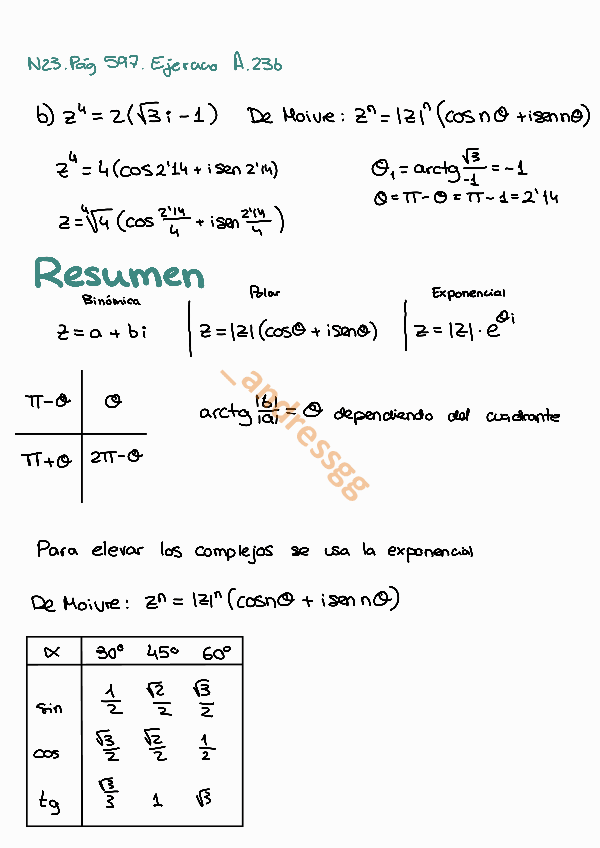 N23. Pág 597. Ejercicio A.23b
b) z⁴ = 2(√3 i - 1) De Moivre: zⁿ = |z|ⁿ (cos nθ + i sen nθ)
z⁴ = 4(cos 2'14 + i sen 2'14) θ₁ = arctg √3/-1 = -1
θ = π - θ = π - 1 = 2'14
z = ⁴√4 (cos 2'14/4 + i sen 2'14/4)
Resumen
Binómica Polar Exponencial
z = a + bi z = |z| (cos θ + i sen θ) z = |z| · e^θi
π - θ θ
arctg |b|/|a| = θ dependiendo del cuadrante
π + θ 2π - θ
_andressgg
Para elevar los complejos se usa la exponencial
De Moivre: zⁿ = |z|ⁿ (cos nθ + i sen nθ)
α 30º 45º 60º
sin 1/2 √2/2 √3/2
cos √3/2 √2/2 1/2
tg √3/3 1 √3